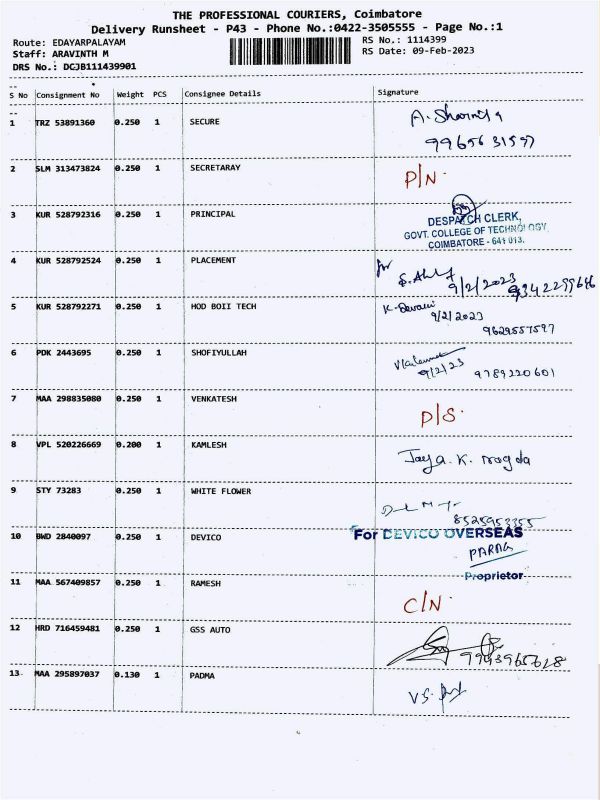 THE PROFESSIONAL COURIERS, Coimbatore
Delivery Runsheet - P43 - Phone No.:0422-3505555 - Page No.:1
Route: EDAYARPALAYAM
RS No.: 1114399
Staff: ARAVINTH M
RS Date: 09-Feb-2023
DRS No.: DCJB111439901
S No Consignment No Weight PCS Consignee Details Signature
1 TRZ 53891360 0.250 1 SECURE A. Sharmila
9965631597
2 SLM 313473824 0.250 1 SECRETARAY P/N.
3 KUR 528792316 0.250 1 PRINCIPAL
DESPATCH CLERK,
GOVT. COLLEGE OF TECHNOLOGY,
COIMBATORE - 641 013.
4 KUR 528792524 0.250 1 PLACEMENT for
9/2/2023 9342299646
5 KUR 528792271 0.250 1 HOD BOII TECH K. Devaki
9/2/2023
9629557597
6 PDK 2443695 0.250 1 SHOFIYULLAH
9/2/23 9789220601
7 MAA 298835080 0.250 1 VENKATESH P/S.
8 VPL 520226669 0.200 1 KAMLESH Jaya. K. nogda
9 STY 73283 0.250 1 WHITE FLOWER
8525953355
10 BWD 2840097 0.250 1 DEVICO For DEVICO OVERSEAS
PARAG
Proprietor
11 MAA 567409857 0.250 1 RAMESH C/N.
12 HRD 716459481 0.250 1 GSS AUTO
9943965628
13 MAA 295897037 0.130 1 PADMA